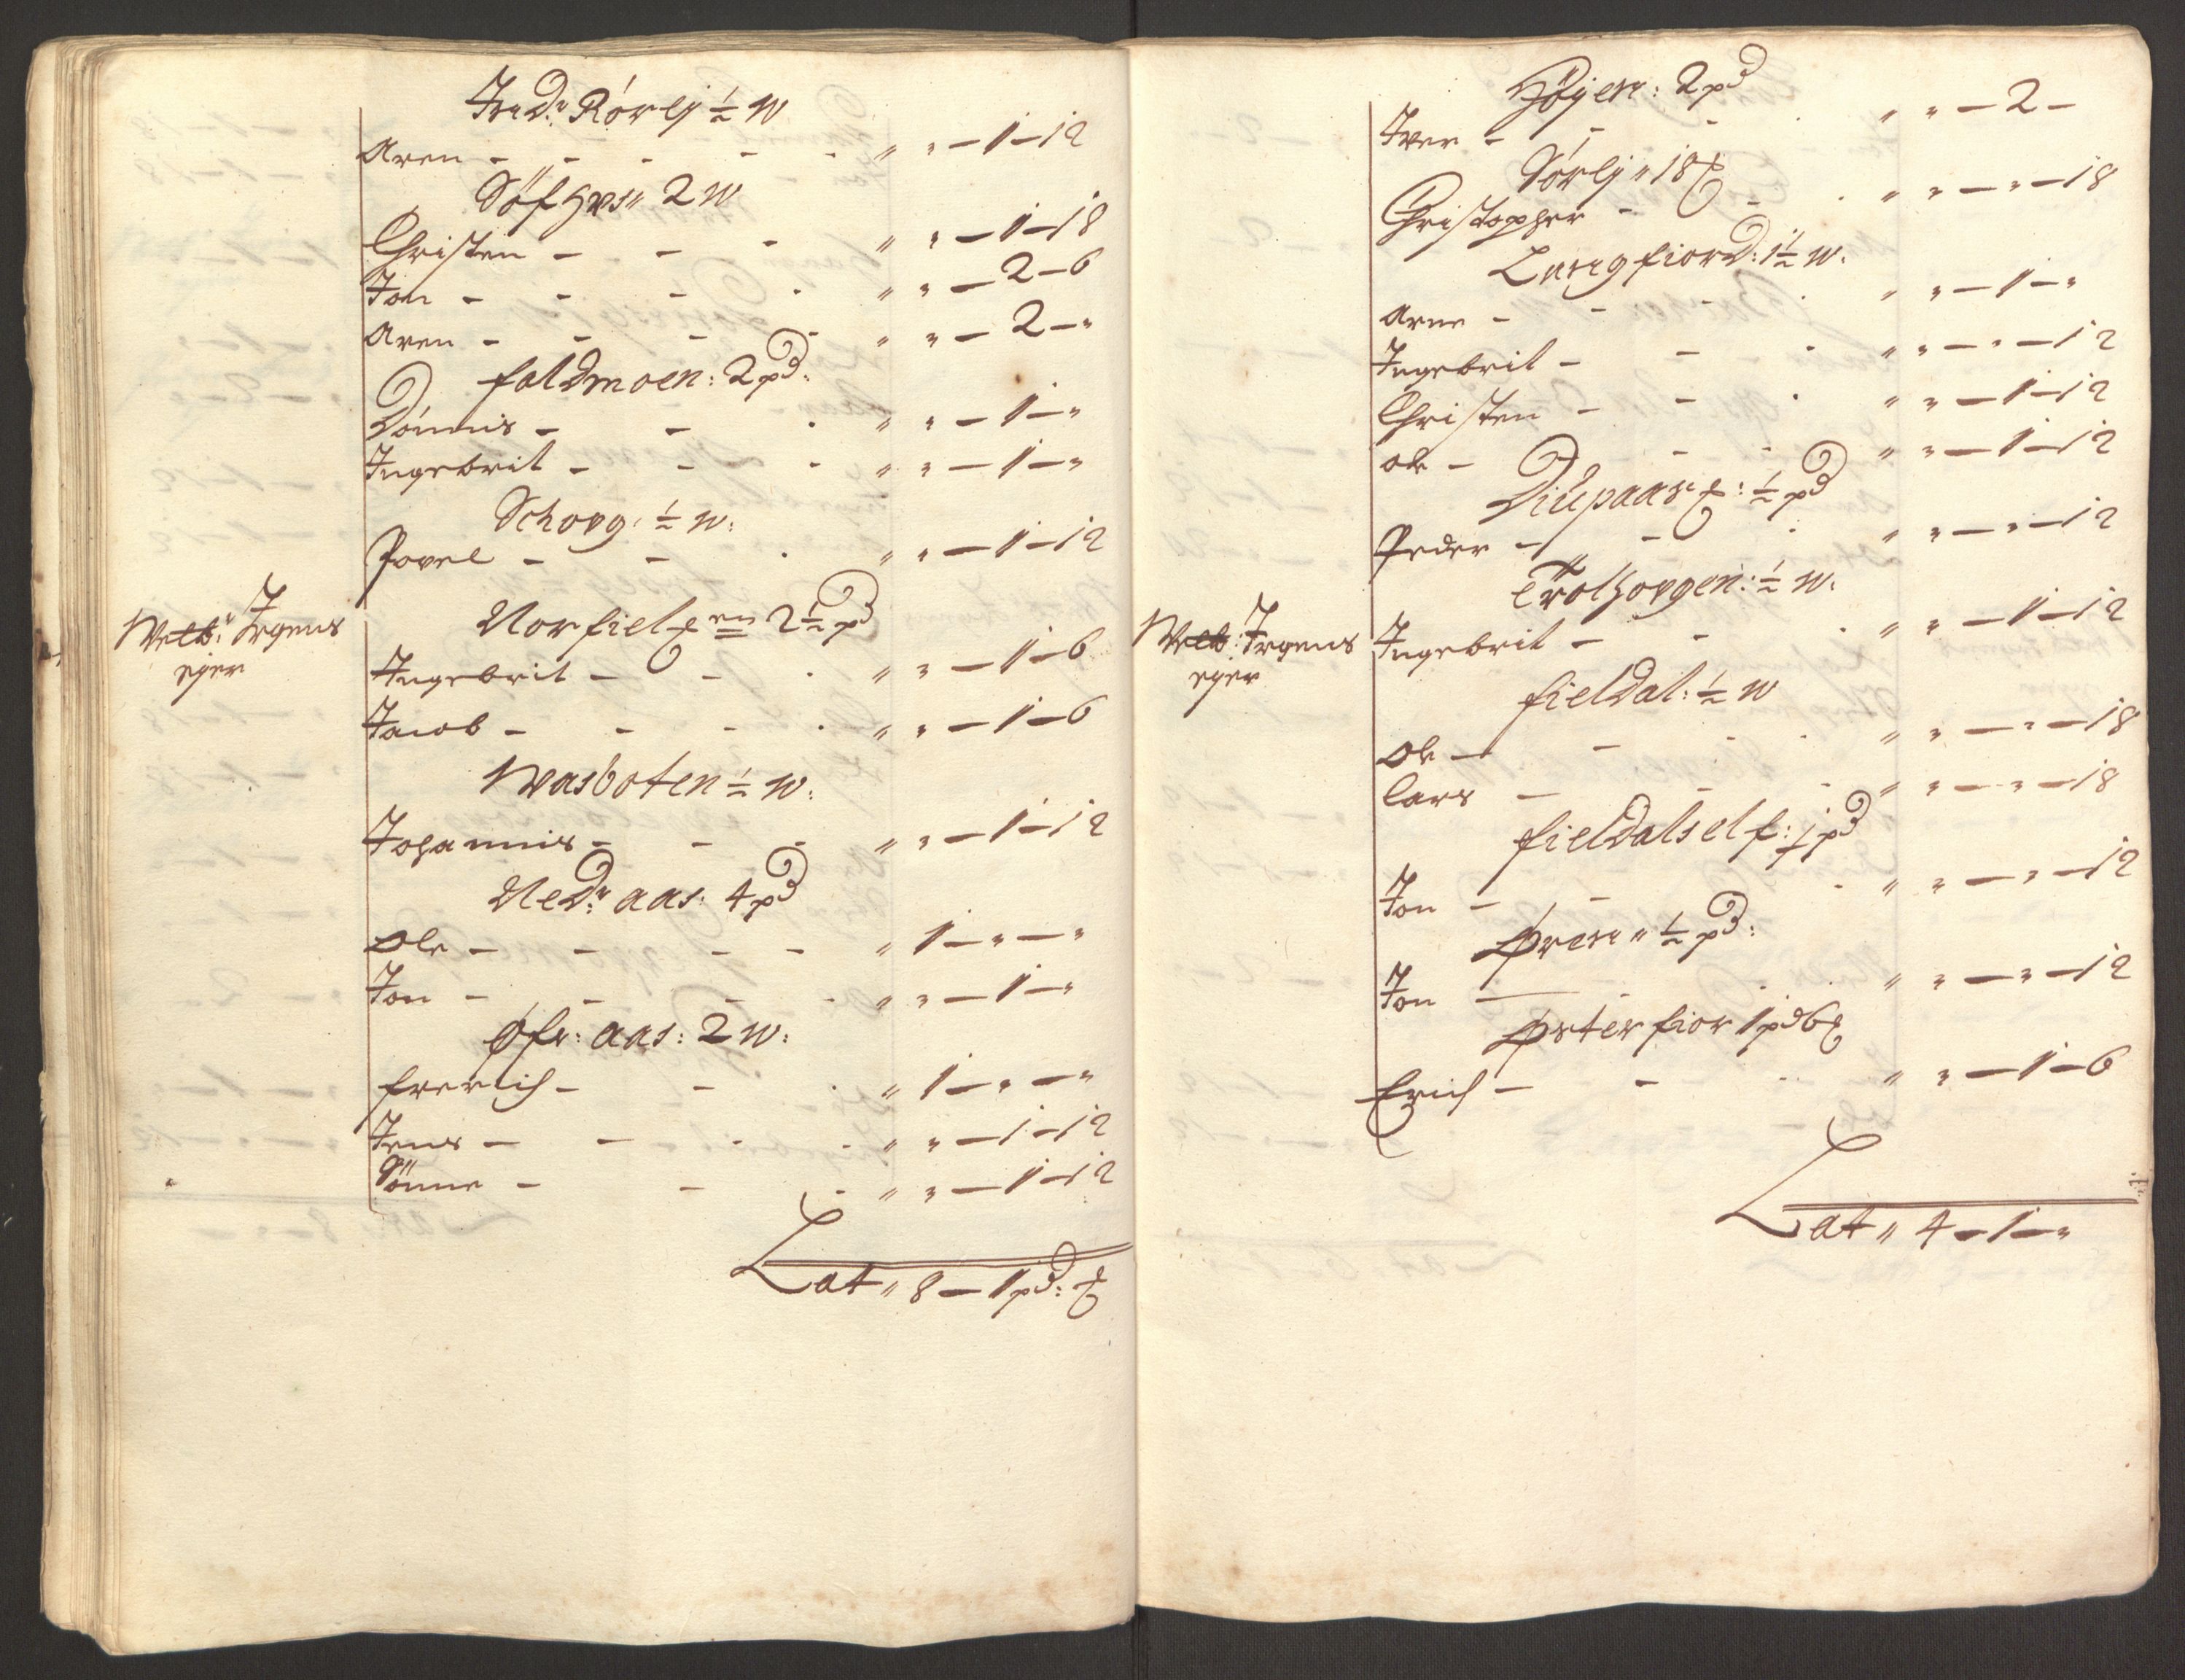 Indr Rórlj ½ W
Aren - - - - - " " - 1 - 12
Söfhvs " 2 W
Christen - - - " " - 1 - 18
Jon - - - - " " - 2 - 6
Aren - - - - " " - 2 - "
faldmoen: 2 pd:
Dönnis - - - " " - 1 - "
Ingebrit - - - " " - 1 - "
Schovg: ½ W:
Povel - - - " " - 1 - 12
Welb: Irgens
ejer
Norfielden 2½ pd
Ingebrit - - - " " - 1 - 6
Jacob - - - - " " - 1 - 6
Wasboten ½ W:
Johannis - - - " " - 1 - 12
Nedr aas: 4 pd
Ole - - - - " 1 - " - "
Jon - - - - " " - 1 - "
Øfr: aas: 2 W:
Frerich - - - " 1 - " - "
Jens - - - - " " - 1 - 12
Sönne - - - " " - 1 - 12
Lat " 8 - 1 pd: ℔
Højen: 2 pd
Iver - - - - " " - 2 -
Sórlj " 18 ℔
Christopher - - - " " - " - 18
Langfiord: 1½ W:
Arne - - - - " " - 1 - "
Ingebrit - - - " " - " - 12
Christen - - - " " - 1 - 12
Ole - - - " " - 1 - 12
Diupaas: ½ pd
Peder - - - " " - " - 12
Trolhovgen: ½ W:
Welb: Irgens
ejer
Ingebrit - - - " " - 1 - 12
fieldal: ½ W
Ole - - - - " " - " - 18
Lars - - - " " - " - 18
fieldalself: ½ pd
Jon - - - " " - " - 12
Øren " ½ pd:
Jon - - - - " " - " - 12
Østerfior 1 pd 6 ℔
Erich - - - - " " - 1 - 6
Lat " 4 - 1 - "